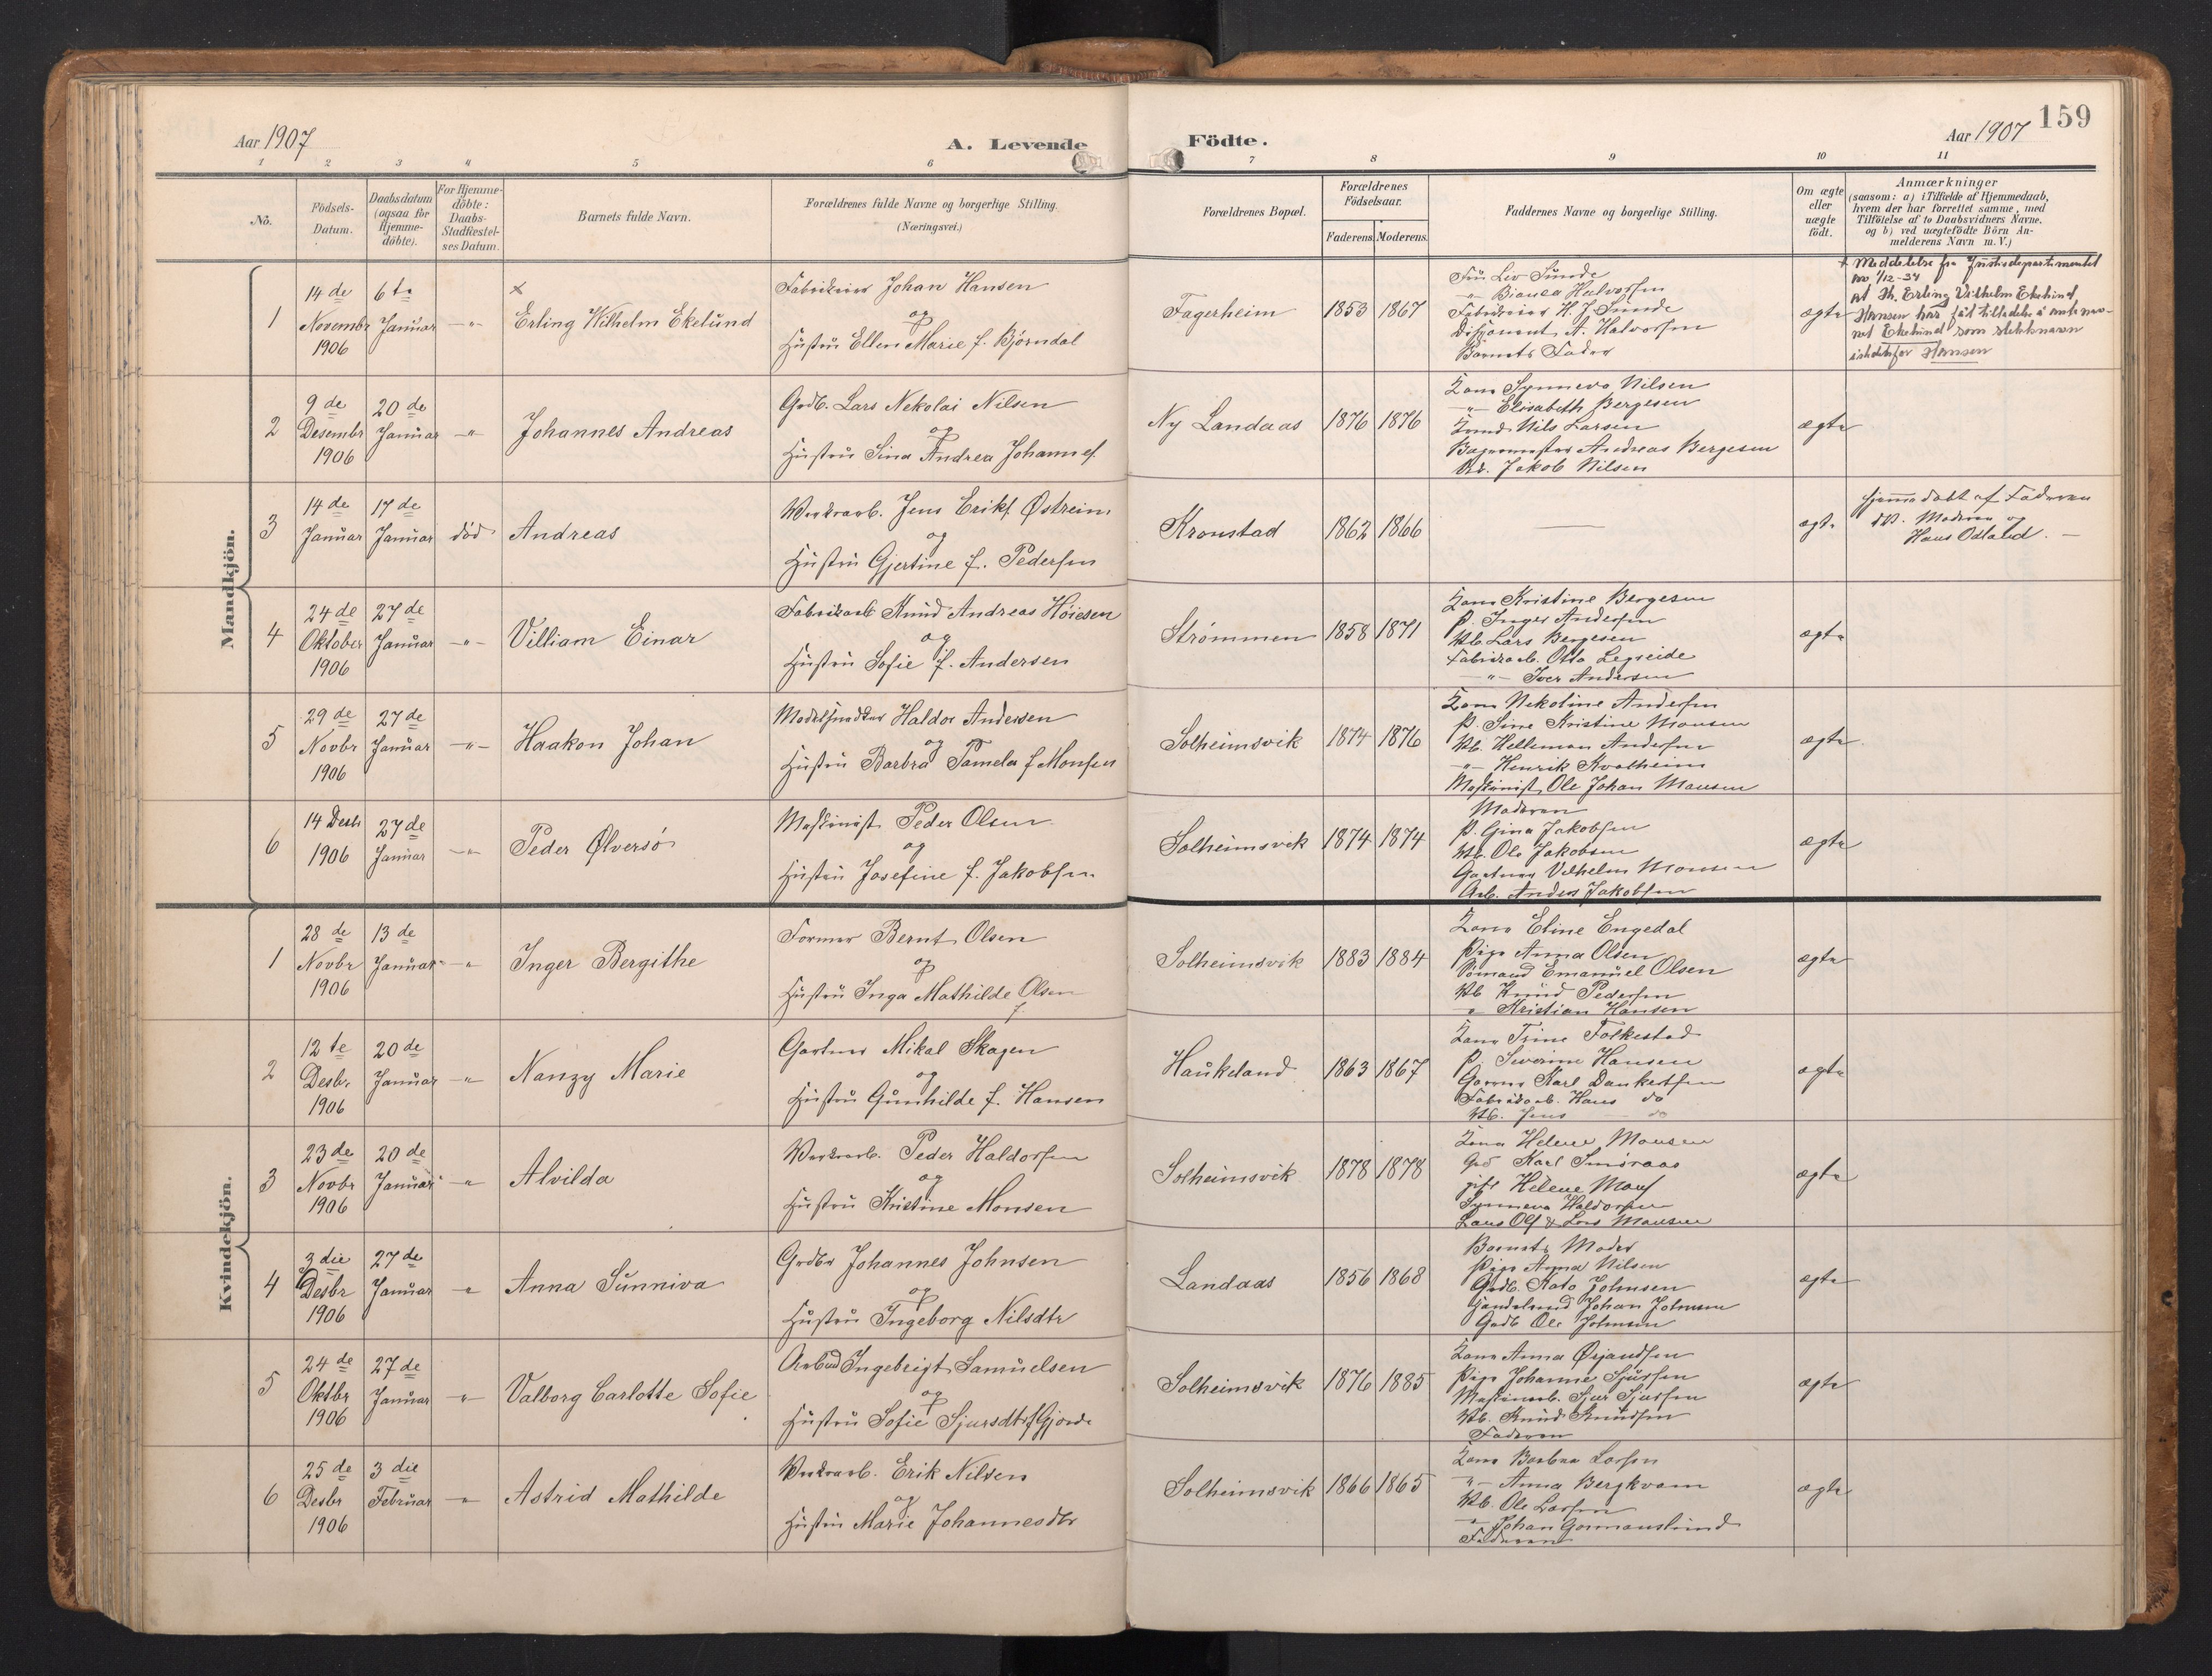 Aar 1907
A. Levende
Födte.
Aar 1907
159
1 2 3 4 5 6 7 8 9 10 11
No.
Födsels-
Datum.
Daabsdatum
(ogsaa for
Hjemme-
döbte).
For Hjemme-
döbte:
Daabs-
Stadfæstel-
ses Datum.
Barnets fulde Navn.
Forældrenes fulde Navne og borgerlige Stilling.
(Næringsvei.)
Forældrenes Bopæl.
Forældrenes
Födselsaar.
Faderens. Moderens.
Faddernes Navne og borgerlige Stilling.
Om ægte
eller
uægte
födt.
Anmærkninger
(saasom: a) i Tilfælde af Hjemmedaab,
hvem der har forrettet samme, med
Tilföielse af to Daabsvidners Navne.
og b) ved uægtefödte Börn An-
melderens Navn m. V.)
Mandkjön.
1
14 de
Novembr
1906
6 te
Januar
-"-
×
Erling Wilhelm Ekelund
Fabrikeier Johan Hansen
og
Hustru Ellen Marie f. Bjørndal
Fagerheim
1853
1867
Fru Lev Sunde
-"- Bianca Halvorsen
Fabrikeier H. J. Sunde
Disponent A. Halvorsen
Barnets Fader
ægte
× Meddelelse fra Justisdepartementet
av 1/12-34
at Jh. Erling Vilhelm Ekelund
Hansen har fåt tilladelse å anta nav-
net Ekelund som slektsnavn
istedetfor Hansen
2
9 de
Desembr
1906
20 de
Januar
-"-
Johannes Andreas
Grdb. Lars Nekolai Nilsen
og
Hustru Sina Andrea Johannesf.
Ny Landaas
1876
1876
Kone Synneva Nilsen
-"- Elisabeth Bergesen
Nils Larsen
Bagermester Andreas Bergesen
Jakob Nilsen
ægte
3
14 de
Januar
17 de
Januar
död
Andreas
Værksarb. Jens Erikf. Østreim
og
Hustru Gjertine f. Pedersen
Kronstad
1862
1866
ægte
Hjemmedøbt af Faderen
Moderen og
Hans Ødland.
4
24 de
Oktober
1906
27 de
Januar
-"-
Villiam Einar
Fabrikarb Knud Andreas Høiesen
og
Hustru Sofie f. Andersen
Strømmen
1858
1871
Kone Kristine Bergesen
P. Inger Andersen
Lars Bergesen
Fabrikarb. Otto Legreide
-"- Iver Andersen
ægte
5
29 de
Novbr
1906
27 de
Januar
-"-
Haakon Johan
Modelsnedker Haldor Andersen
og
Hustru Barbra Pamela f Monsen
Solheimsvik
1874
1876
Kone Nekoline Andersen
P. Sine Kristine Monsen
Helleman Andersen
-"- Henrik Kvalheim
Maskinist Ole Johan Monsen
ægte
6
14 Desbr
1906
27 de
Januar
-"-
Peder Ølversø
Maskinist Peder Olsen
og
Hustru Josefine f. Jakobsen
Solheimsvik
1874
1874
Moderen
P. Gina Jakobsen
Ole Jakobsen
Gartner Vilhelm Monsen
Arb. Anders Jakobsen
ægte
Kvindekjön.
1
28 de
Novbr
1906
13 de
Januar
-"-
Inger Bergithe
Former Bernt Olsen
og
Hustru Inga Mathilde Olsen
f.
Solheimsvik
1883
1884
Kone Eline Engedal
Pige Anna Olsen
Sømand Emanuel Olsen
Knud Pedersen
" Kristian Hansen
ægte
2
12 te
Desbr.
1906
20 de
Januar
-"-
Nanzy Marie
Gartner Mikal Skagen
og
Hustru Gunhilde f. Hansen
Haukeland
1863
1867
Kone Trine Folkestad
P. Severine Hansen
Karl Dankertsen
Fabrikarb. Hans do
Jens do
ægte
3
23 de
Novbr
1906
20 de
Januar
-"-
Alvilda
Værksarb. Peder Haldorsen
og
Hustru Kristine Monsen
Solheimsvik
1878
1878
Kone Helene Monsen
Karl Smøraas
gift Helene Monsf
Synneva Haldorsen
Lars Olf & Lars Monsen
ægte
4
3 die
Desbr
1906
27 de
Januar
"
Anna Sunniva
Grdbr Johannes Johnsen
og
Hustru Ingeborg Nilsdtr
Landaas
1856
1868
Barnets Moder
Pige Anna Nilsen
Grdb. Johnsen
Handelsmd Johan Johnsen
Grdb Ole Johnsen
ægte
5
24 de
Oktbr
1906
27 de
Januar
-"-
Valborg Carlotte Sofie
Arbmd Ingebrigt Samuelsen
og
Hustru Sofie Sjursdtr f Gjorde
Solheimsvik
1876
1885
Kone Anna Ørjandsen
Pige Johanne Sjursen
Maskinarb. Sjur Sjursen
Knud Knudsen
Faderen
ægte
6
25 de
Desbr
1906
3 die
Februar
-"-
Astrid Mathilde
Værksarb. Erik Nilsen
og
Hustru Marie Johannesdtr
Solheimsvik
1866
1865
Kone Barbra Larsen
-"- Anna Bergkvam
Ole Larsen
" Johan Gormanslund
Faderen
ægte